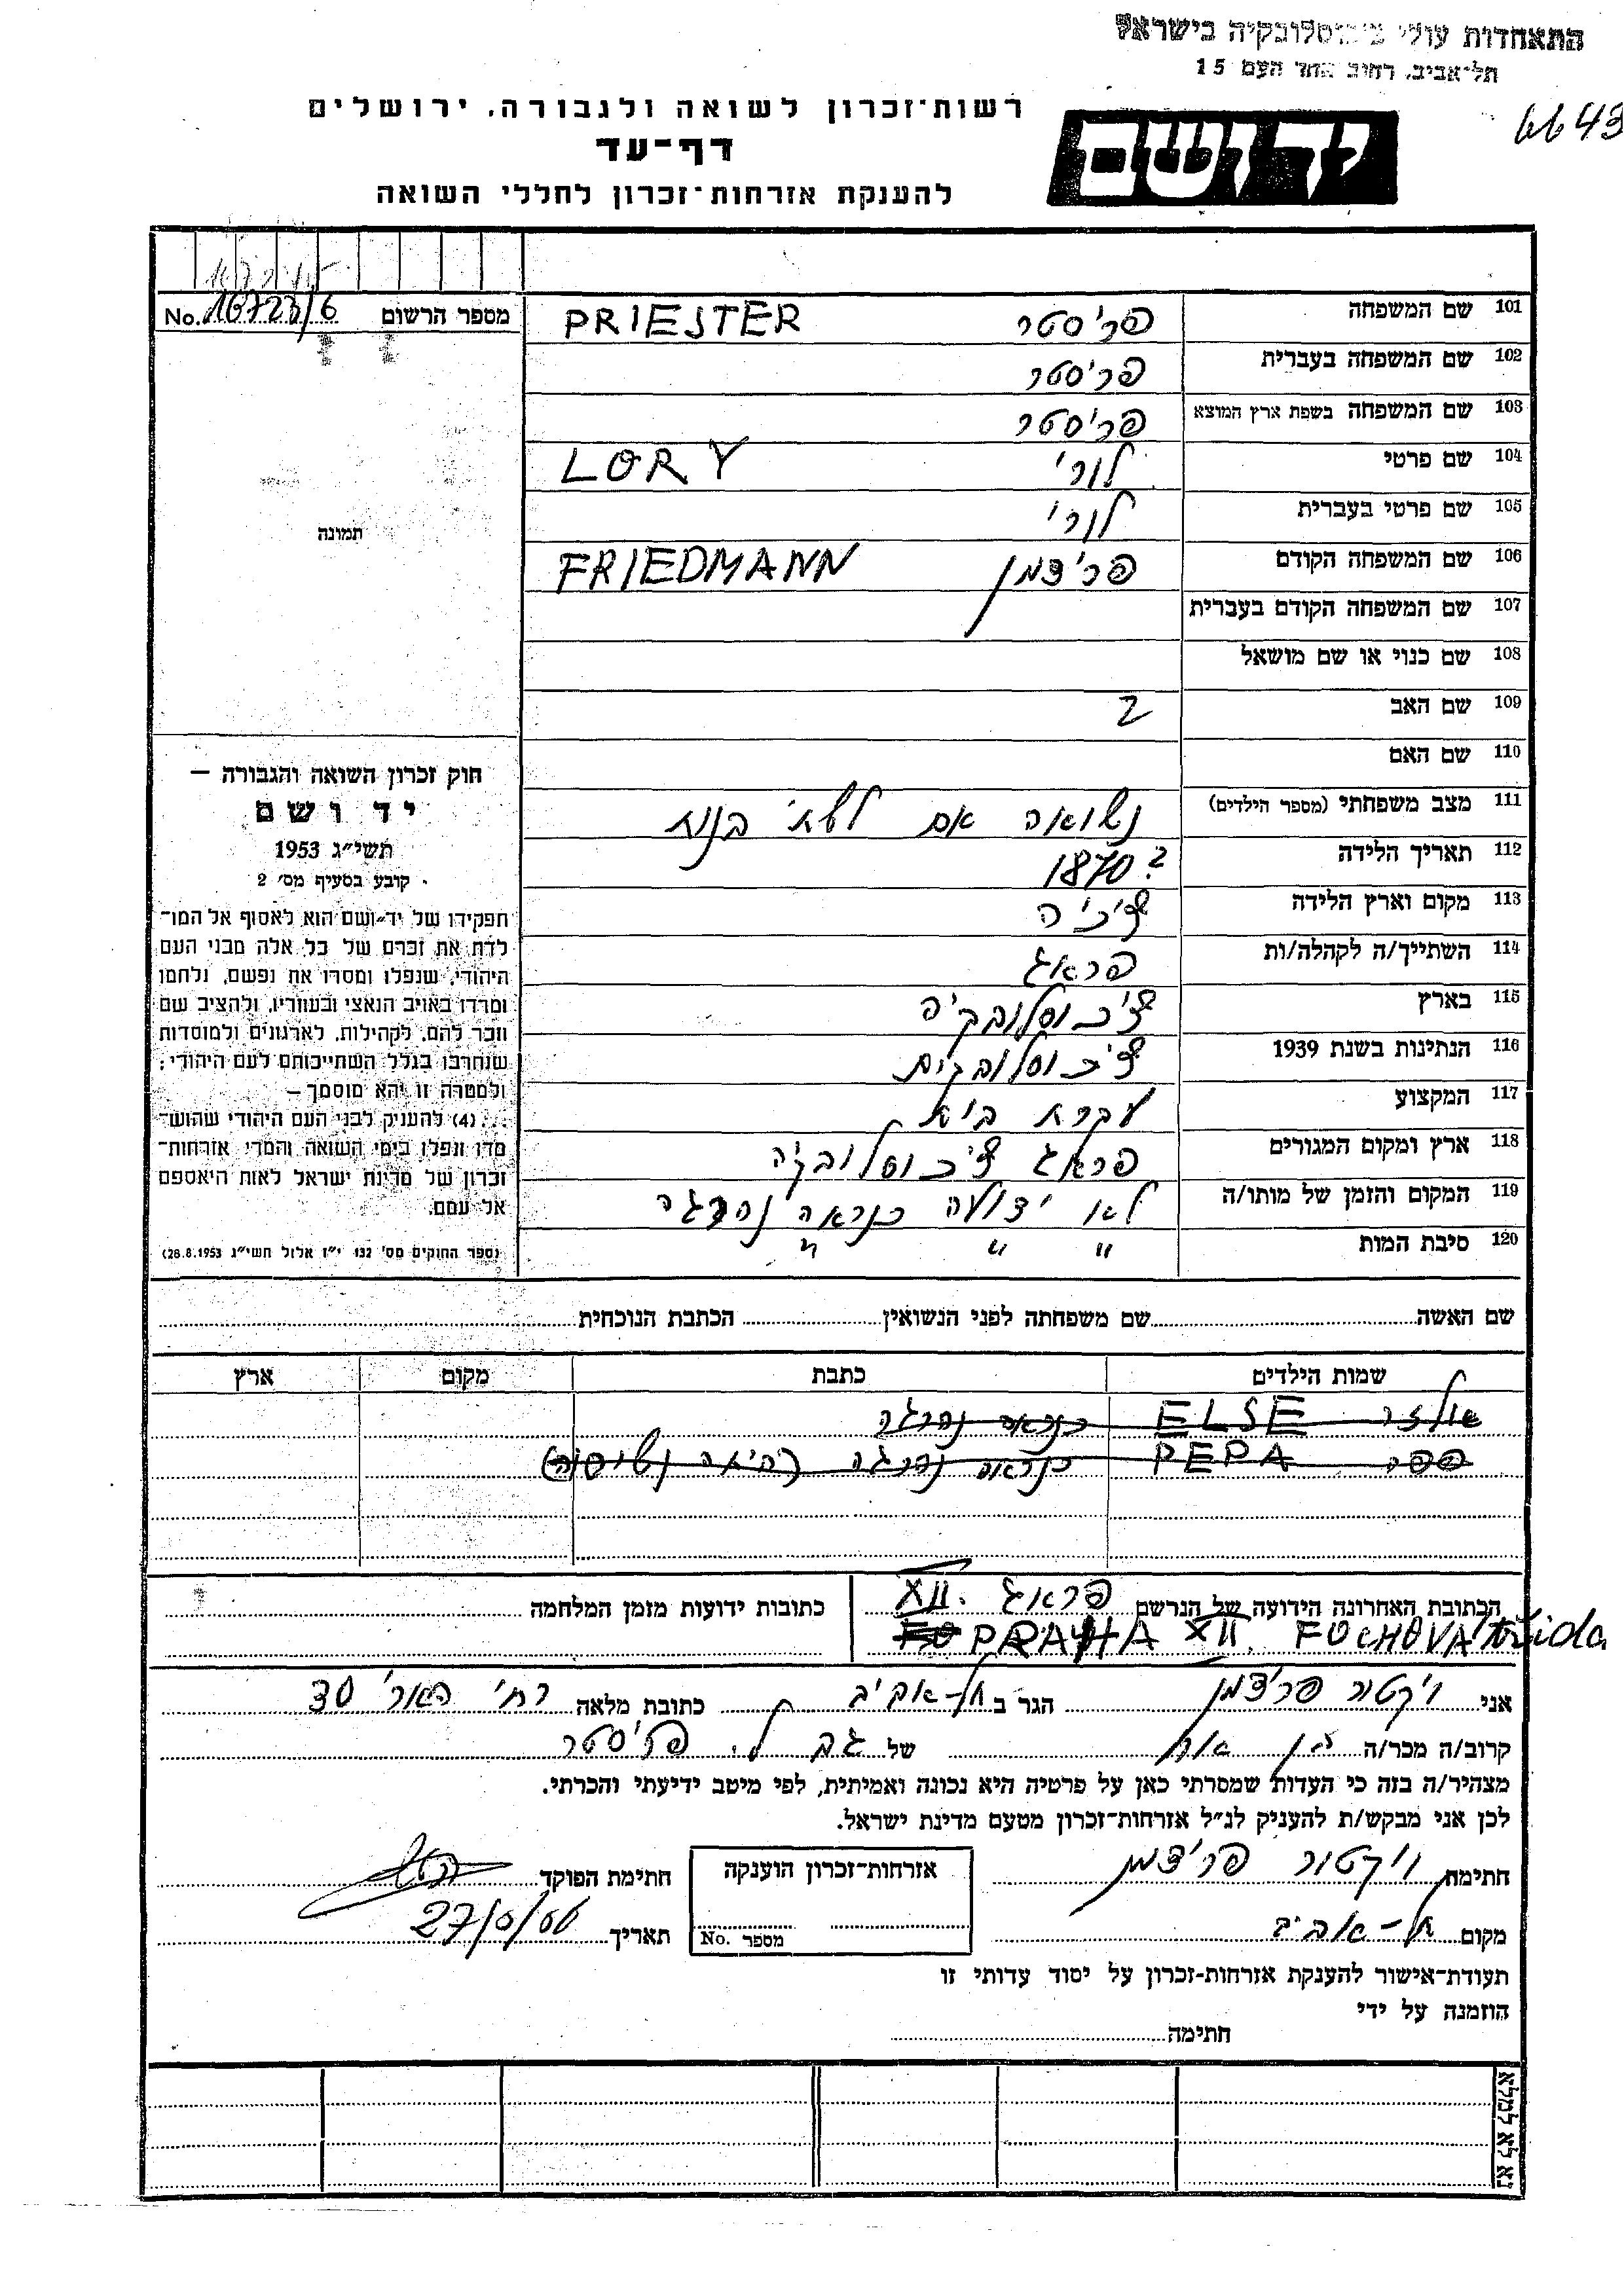 התאחדות עולי צ'כוסלובקיה בישראל
תל־אביב, רחוב אחד העם 15
6643
רשות־זכרון לשואה ולגבורה, ירושלים
יד ושם
דף־עד
להענקת אזרחות־זכרון לחללי השואה
מספר הרשום No. 16723/6
101 שם המשפחה פריסטר PRIESTER
102 שם המשפחה בעברית פריסטר
103 שם המשפחה בשפת ארץ המוצא פריסטר
104 שם פרטי לורי LORY
105 שם פרטי בעברית לורי
106 שם המשפחה הקודם פרידמן FRIEDMANN
107 שם המשפחה הקודם בעברית
108 שם כנוי או שם מושאל
109 שם האב ?
110 שם האם
111 מצב משפחתי (מספר הילדים) נשואה אם לשתי בנות
112 תאריך הלידה 1870?
113 מקום וארץ הלידה צ'כיה
114 השתייך/ה לקהלה/ות פראג
115 בארץ צ'כוסלובקיה
116 הנתינות בשנת 1939 צ'כוסלובקית
117 המקצוע עקרת בית
118 ארץ ומקום המגורים פראג צ'כוסלובקיה
119 המקום והזמן של מותו/ה לא ידועה כנראה נהרגה
120 סיבת המות " " "
תמונה
חוק זכרון השואה והגבורה —
יד ושם
תשי״ג 1953
קובע בסעיף מס׳ 2
תפקידו של יד־ושם הוא לאסוף אל המו־
לדת את זכרם של כל אלה מבני העם
היהודי, שנפלו ומסרו את נפשם, נלחמו
ומרדו באויב הנאצי ובעוזריו, ולהציב שם
וזכר להם, לקהילות, לארגונים ולמוסדות
שנחרבו בגלל השתייכותם לעם היהודי;
ולמטרה זו יהא מוסמך —
...(4) להעניק לבני העם היהודי שהוש־
מדו ונפלו בימי השואה והמרי אזרחות־
זכרון של מדינת ישראל לאות היאספם
אל עמם.
(ספר החוקים מס׳ 132 י״ז אלול תשי״ג 28.8.1953)
שם האשה שם משפחתה לפני הנשואין הכתבת הנוכחית
שמות הילדים כתבת מקום ארץ
אלזה ELSE כנראה נהרגה
פפה PEPA כנראה נהרגה (היתה נשואה)
הכתובת האחרונה הידועה של הנרשם פראג XII.
PRAHA XII. FOCHOVA třída
כתובות ידועות מזמן המלחמה
אני ויקטור פרידמן הגר ב תל-אביב כתובת מלאה רח' הארי 30
קרוב/ה מכר/ה בן אח של גב' ל. פריסטר
מצהיר/ה בזה כי העדות שמסרתי כאן על פרטיה היא נכונה ואמיתית, לפי מיטב ידיעתי והכרתי.
לכן אני מבקש/ת להעניק לנ״ל אזרחות־זכרון מטעם מדינת ישראל.
חתימת ויקטור פרידמן
אזרחות־זכרון הוענקה
חתימת הפוקד
מקום תל-אביב
מספר No.
תאריך 27/5/56
תעודת־אישור להענקת אזרחות־זכרון על יסוד עדותי זו
הוזמנה על ידי
חתימה
נא לא למלא